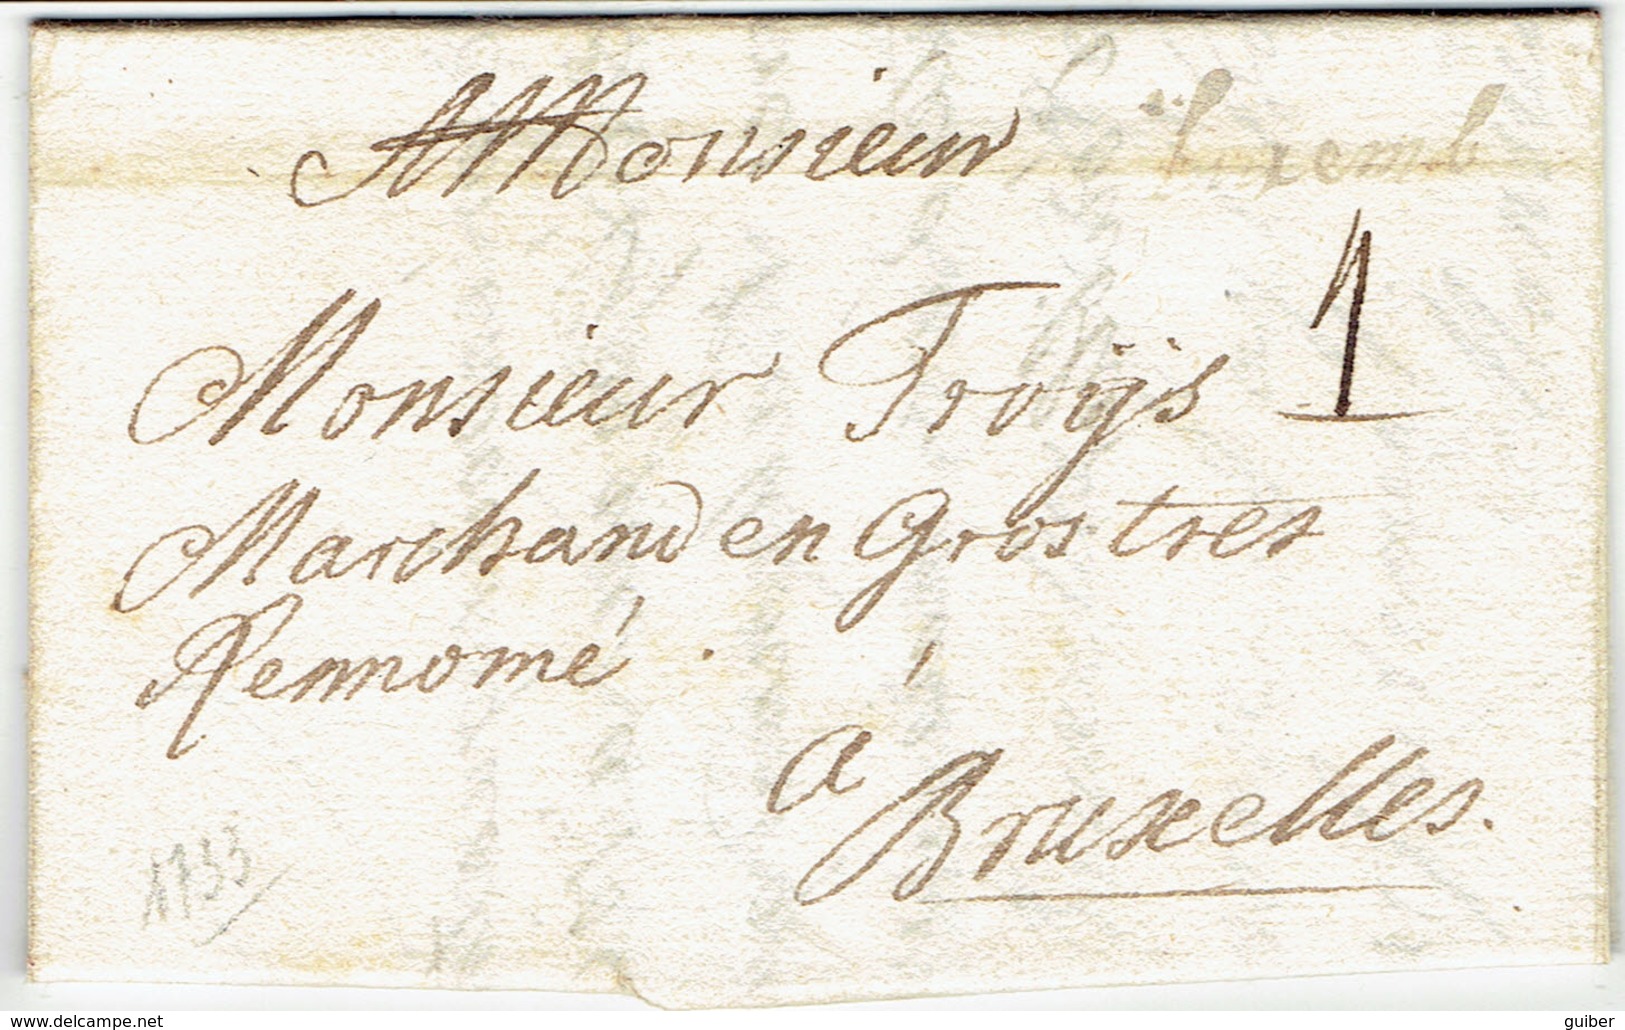 A Monsieur Luxemb
1
Monsieur Troijs
Marchand en Gros tres
Rennomé.
a
Bruxelles.
1733
www.delcampe.net
guiber